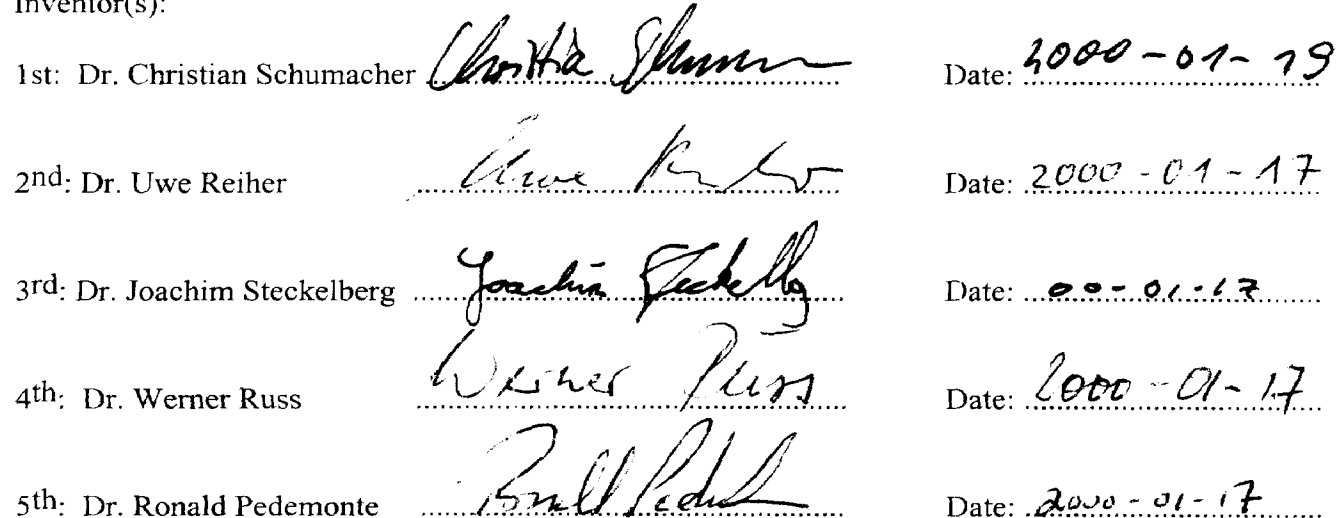 Inventor(s):
1st: Dr. Christian Schumacher Christia Schumm Date: 2000-01-19
2nd: Dr. Uwe Reiher Uwe Reiher Date: 2000-01-17
3rd: Dr. Joachim Steckelberg Joachim Steckelbg Date: 00-01-17
4th: Dr. Werner Russ Werner Russ Date: 2000-01-17
5th: Dr. Ronald Pedemonte Date: 2000-01-17